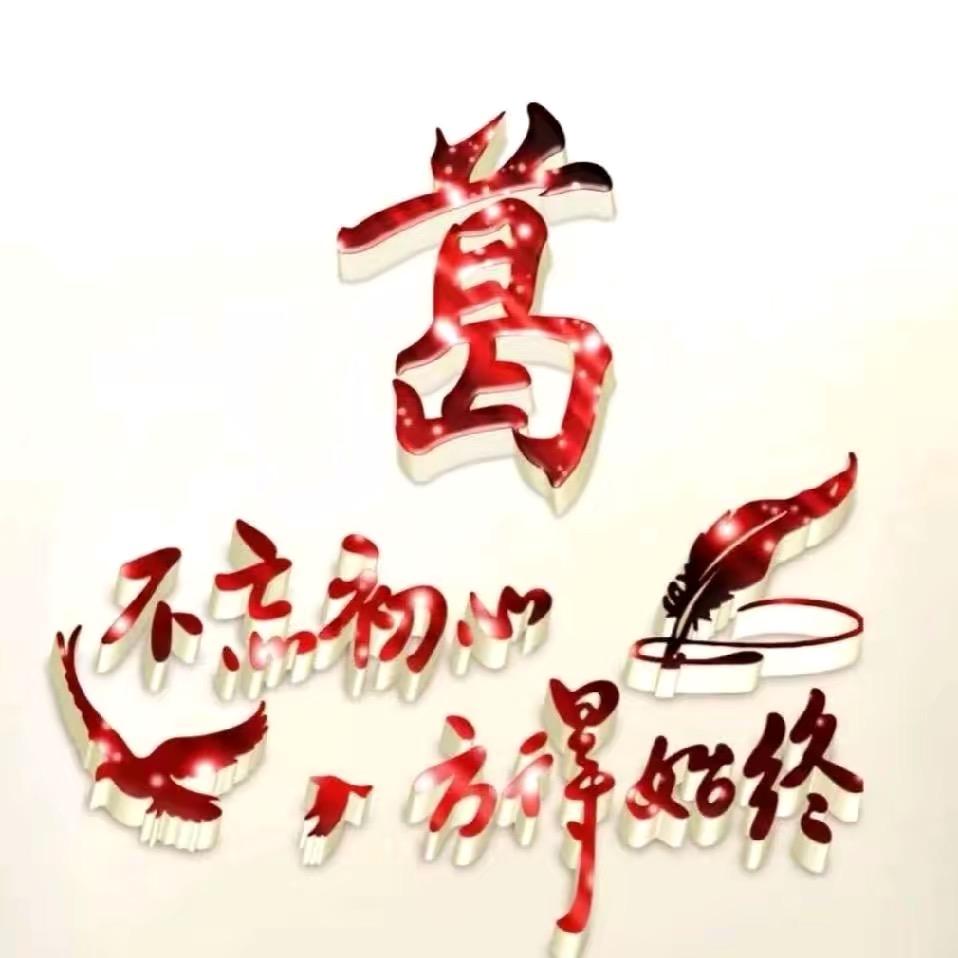 萬
不忘初心
方得始终